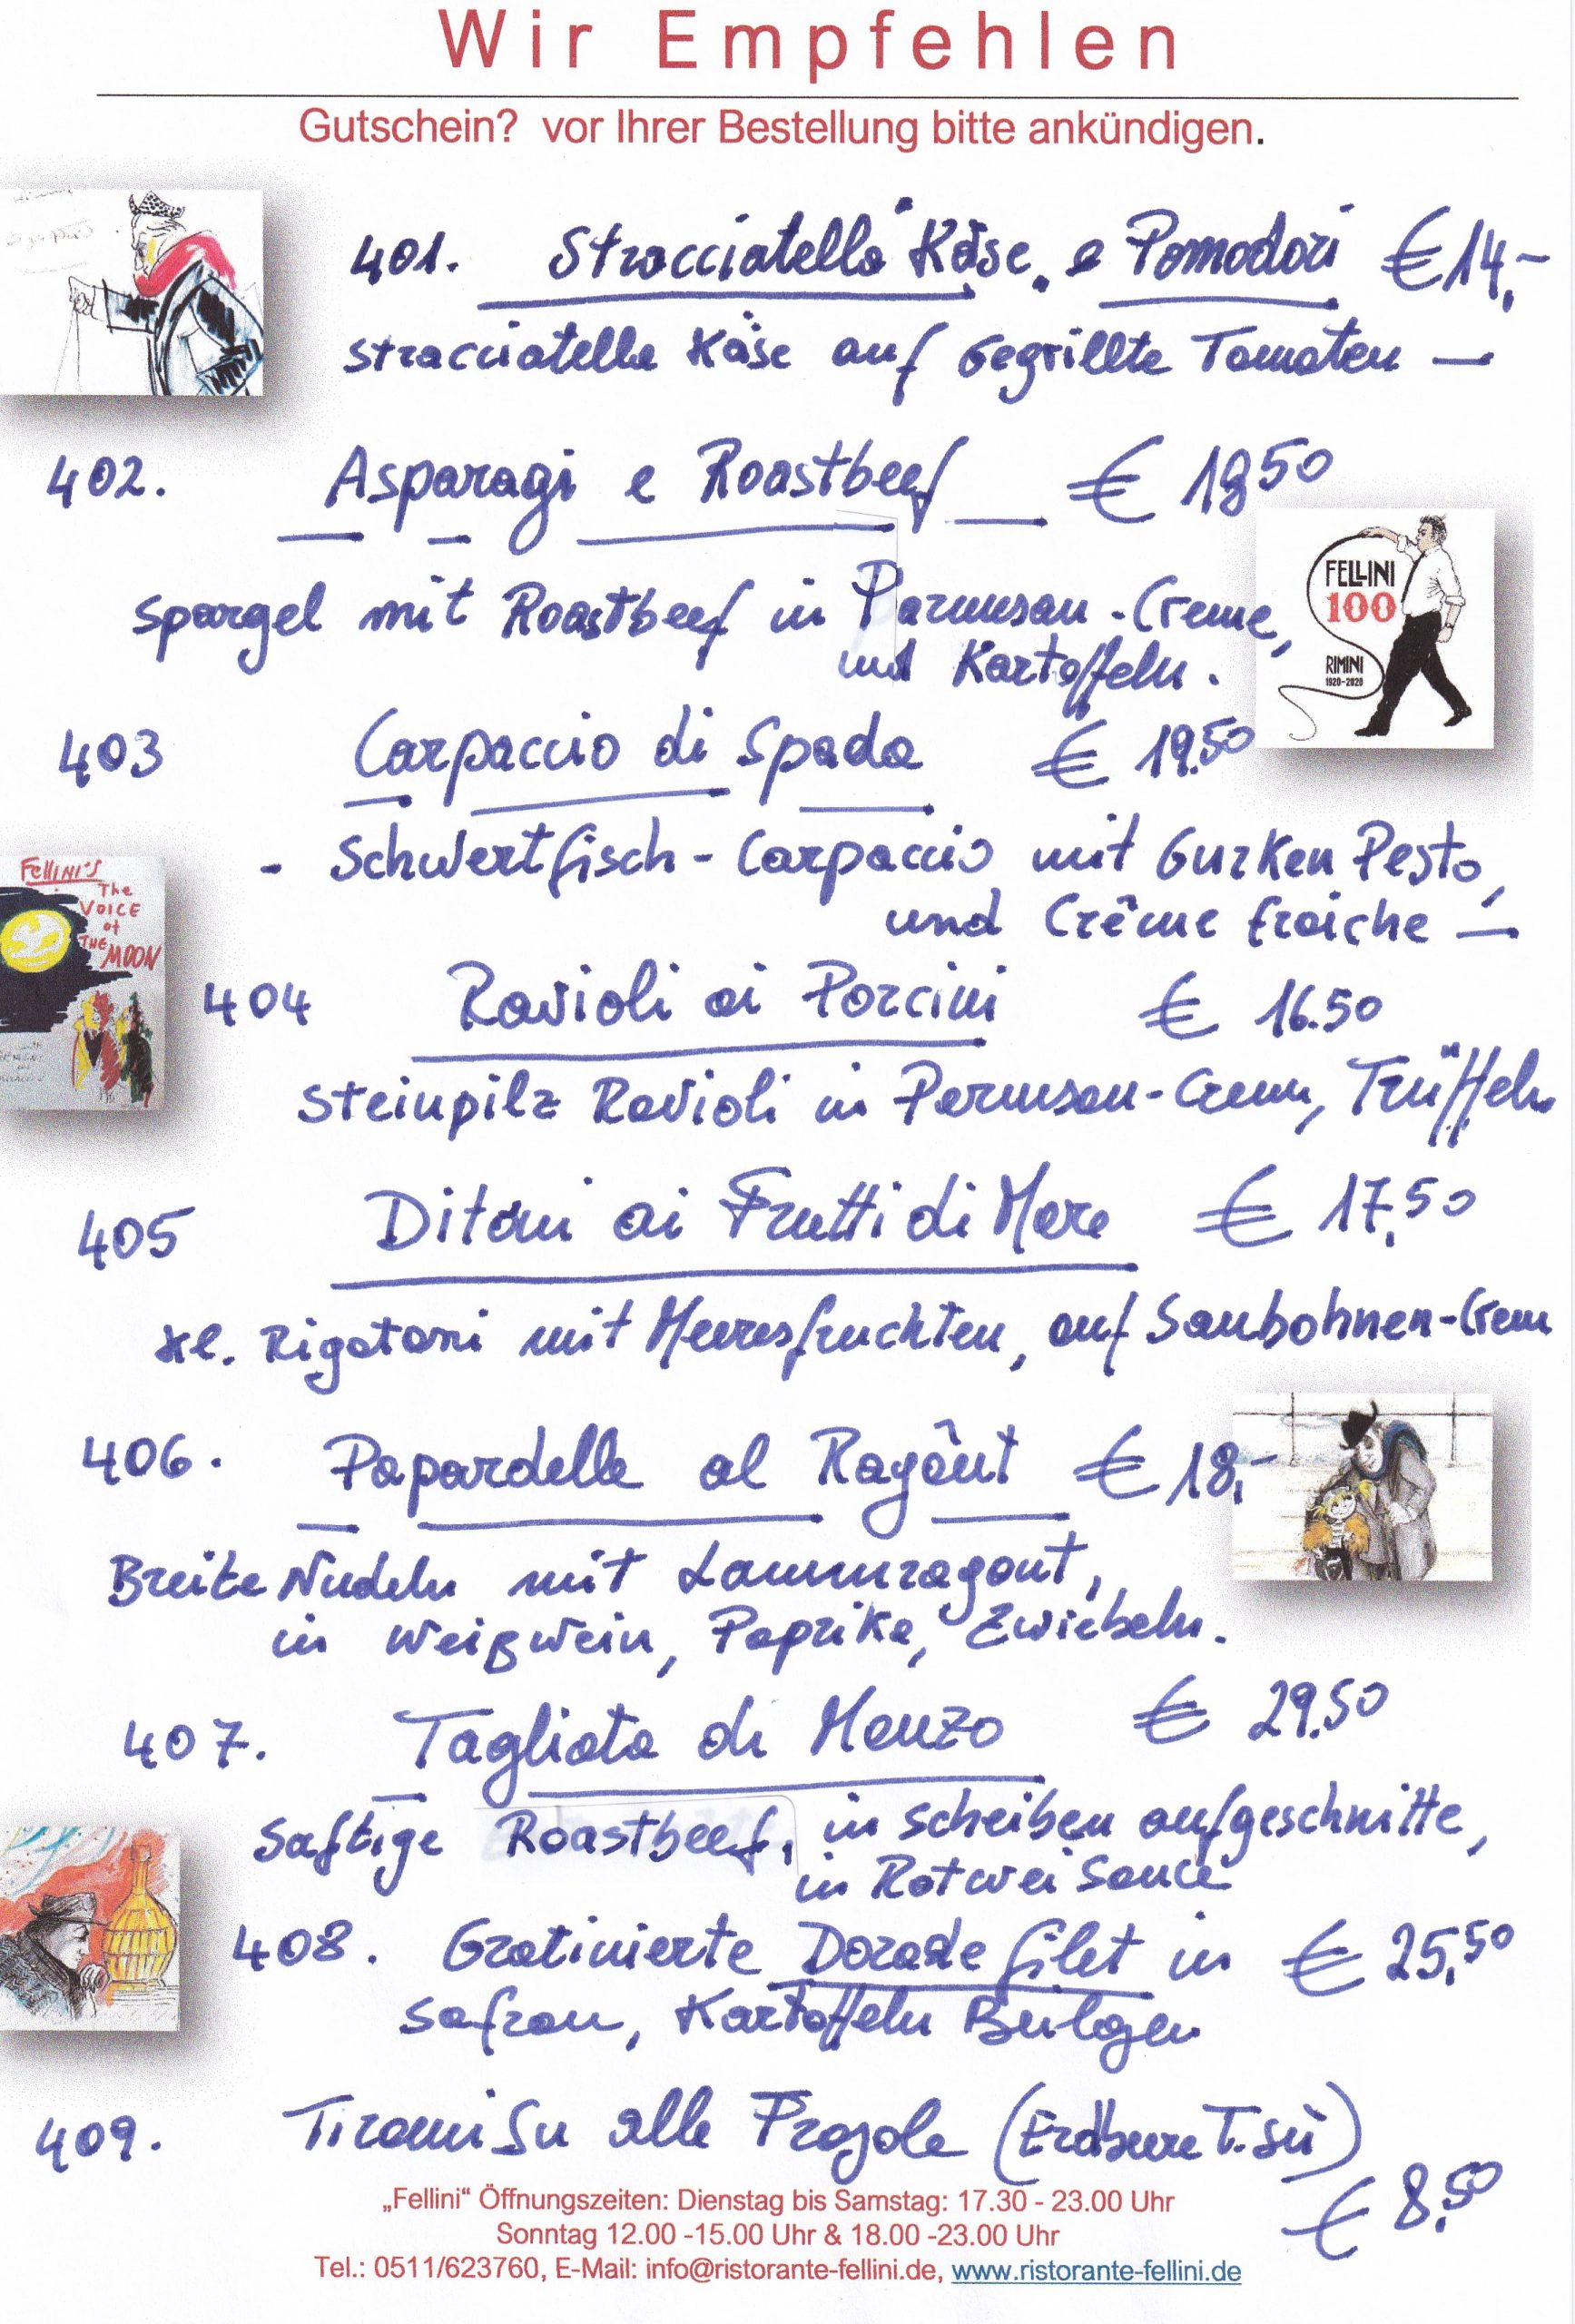 Wir Empfehlen
Gutschein? vor Ihrer Bestellung bitte ankündigen.
401. Stracciatella Käse e Pomodori € 14,-
stracciatella Käse auf Gegrillte Tomaten —
402. Asparagi e Roastbeef € 18 50
Spargel mit Roastbeef in Parmesan-Creme,
und Kartoffeln.
FELLINI
100
RIMINI
1920-2020
403 Carpaccio di Spada € 19.50
- Schwertfisch - Carpaccio mit Gurken Pesto,
und Crême fraiche —
FellINI'S
The
VOICE
of
THE MOON
404 Ravioli ai Porcini € 16.50
Steinpilz Ravioli in Parmesan-Crem, Trüffeln
405 Ditoni ai Frutti di Mare € 17,50
kl. Rigatoni mit Meeresfruchten, auf Saubohnen-Crem
406. Papardelle al Ragôut € 18,-
Breite Nudeln mit Lammragout,
in Weißwein, Paprika, Zwiebeln.
407. Tagliata di Manzo € 29.50
Saftige Roastbeef, in Scheiben aufgeschnitte,
in Rotwei Sauce
408. Gratinierte Dorade filet in € 25,50
Safran, Kartoffeln Beilagen
409. TiramiSu alle Fragole (Erdbeere T.sù)
€ 8,50
„Fellini“ Öffnungszeiten: Dienstag bis Samstag: 17.30 - 23.00 Uhr
Sonntag 12.00 -15.00 Uhr & 18.00 -23.00 Uhr
Tel.: 0511/623760, E-Mail: info@ristorante-fellini.de, www.ristorante-fellini.de